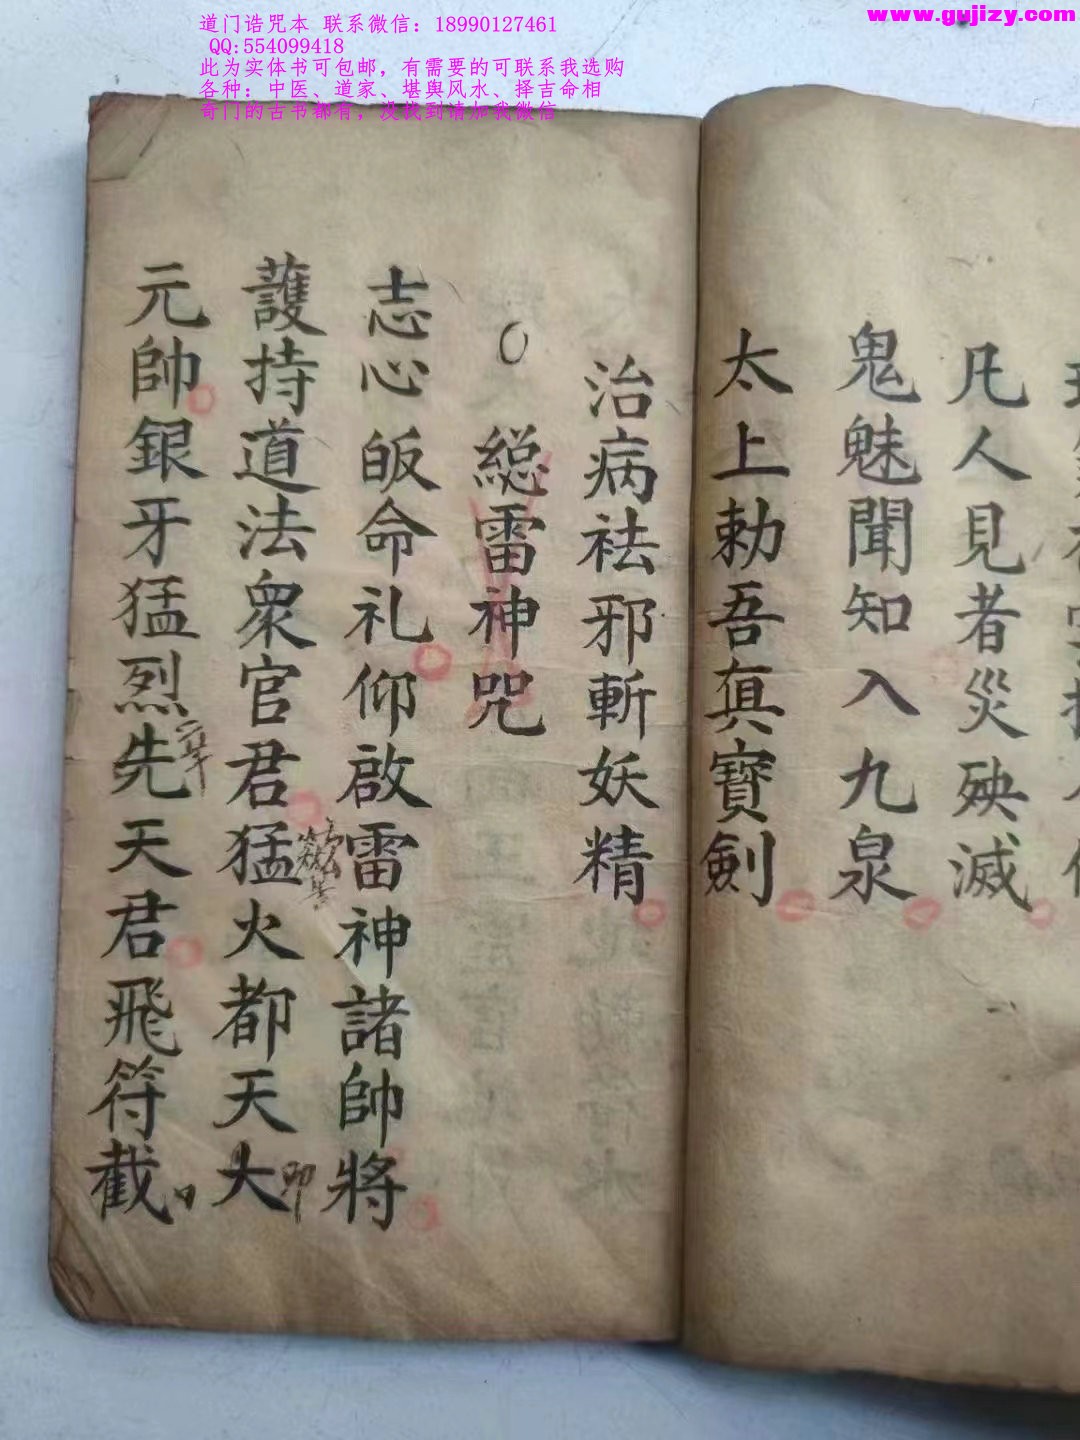 道门诰咒本 联系微信：18990127461
QQ:554099418
此为实体书可包邮，有需要的可联系我选购
各种：中医、道家、堪舆风水、择吉命相
奇门的古书都有，没找到请加我微信
www.gujizy.com
凡人見者災殃滅
鬼魅聞知入九泉
太上勅吾真寳劍
治病祛邪斬妖精
〇 総雷神咒
志心皈命礼仰啟雷神諸帥將
護持道法衆官君猛火都天大
元帥銀牙猛烈先天君飛符截